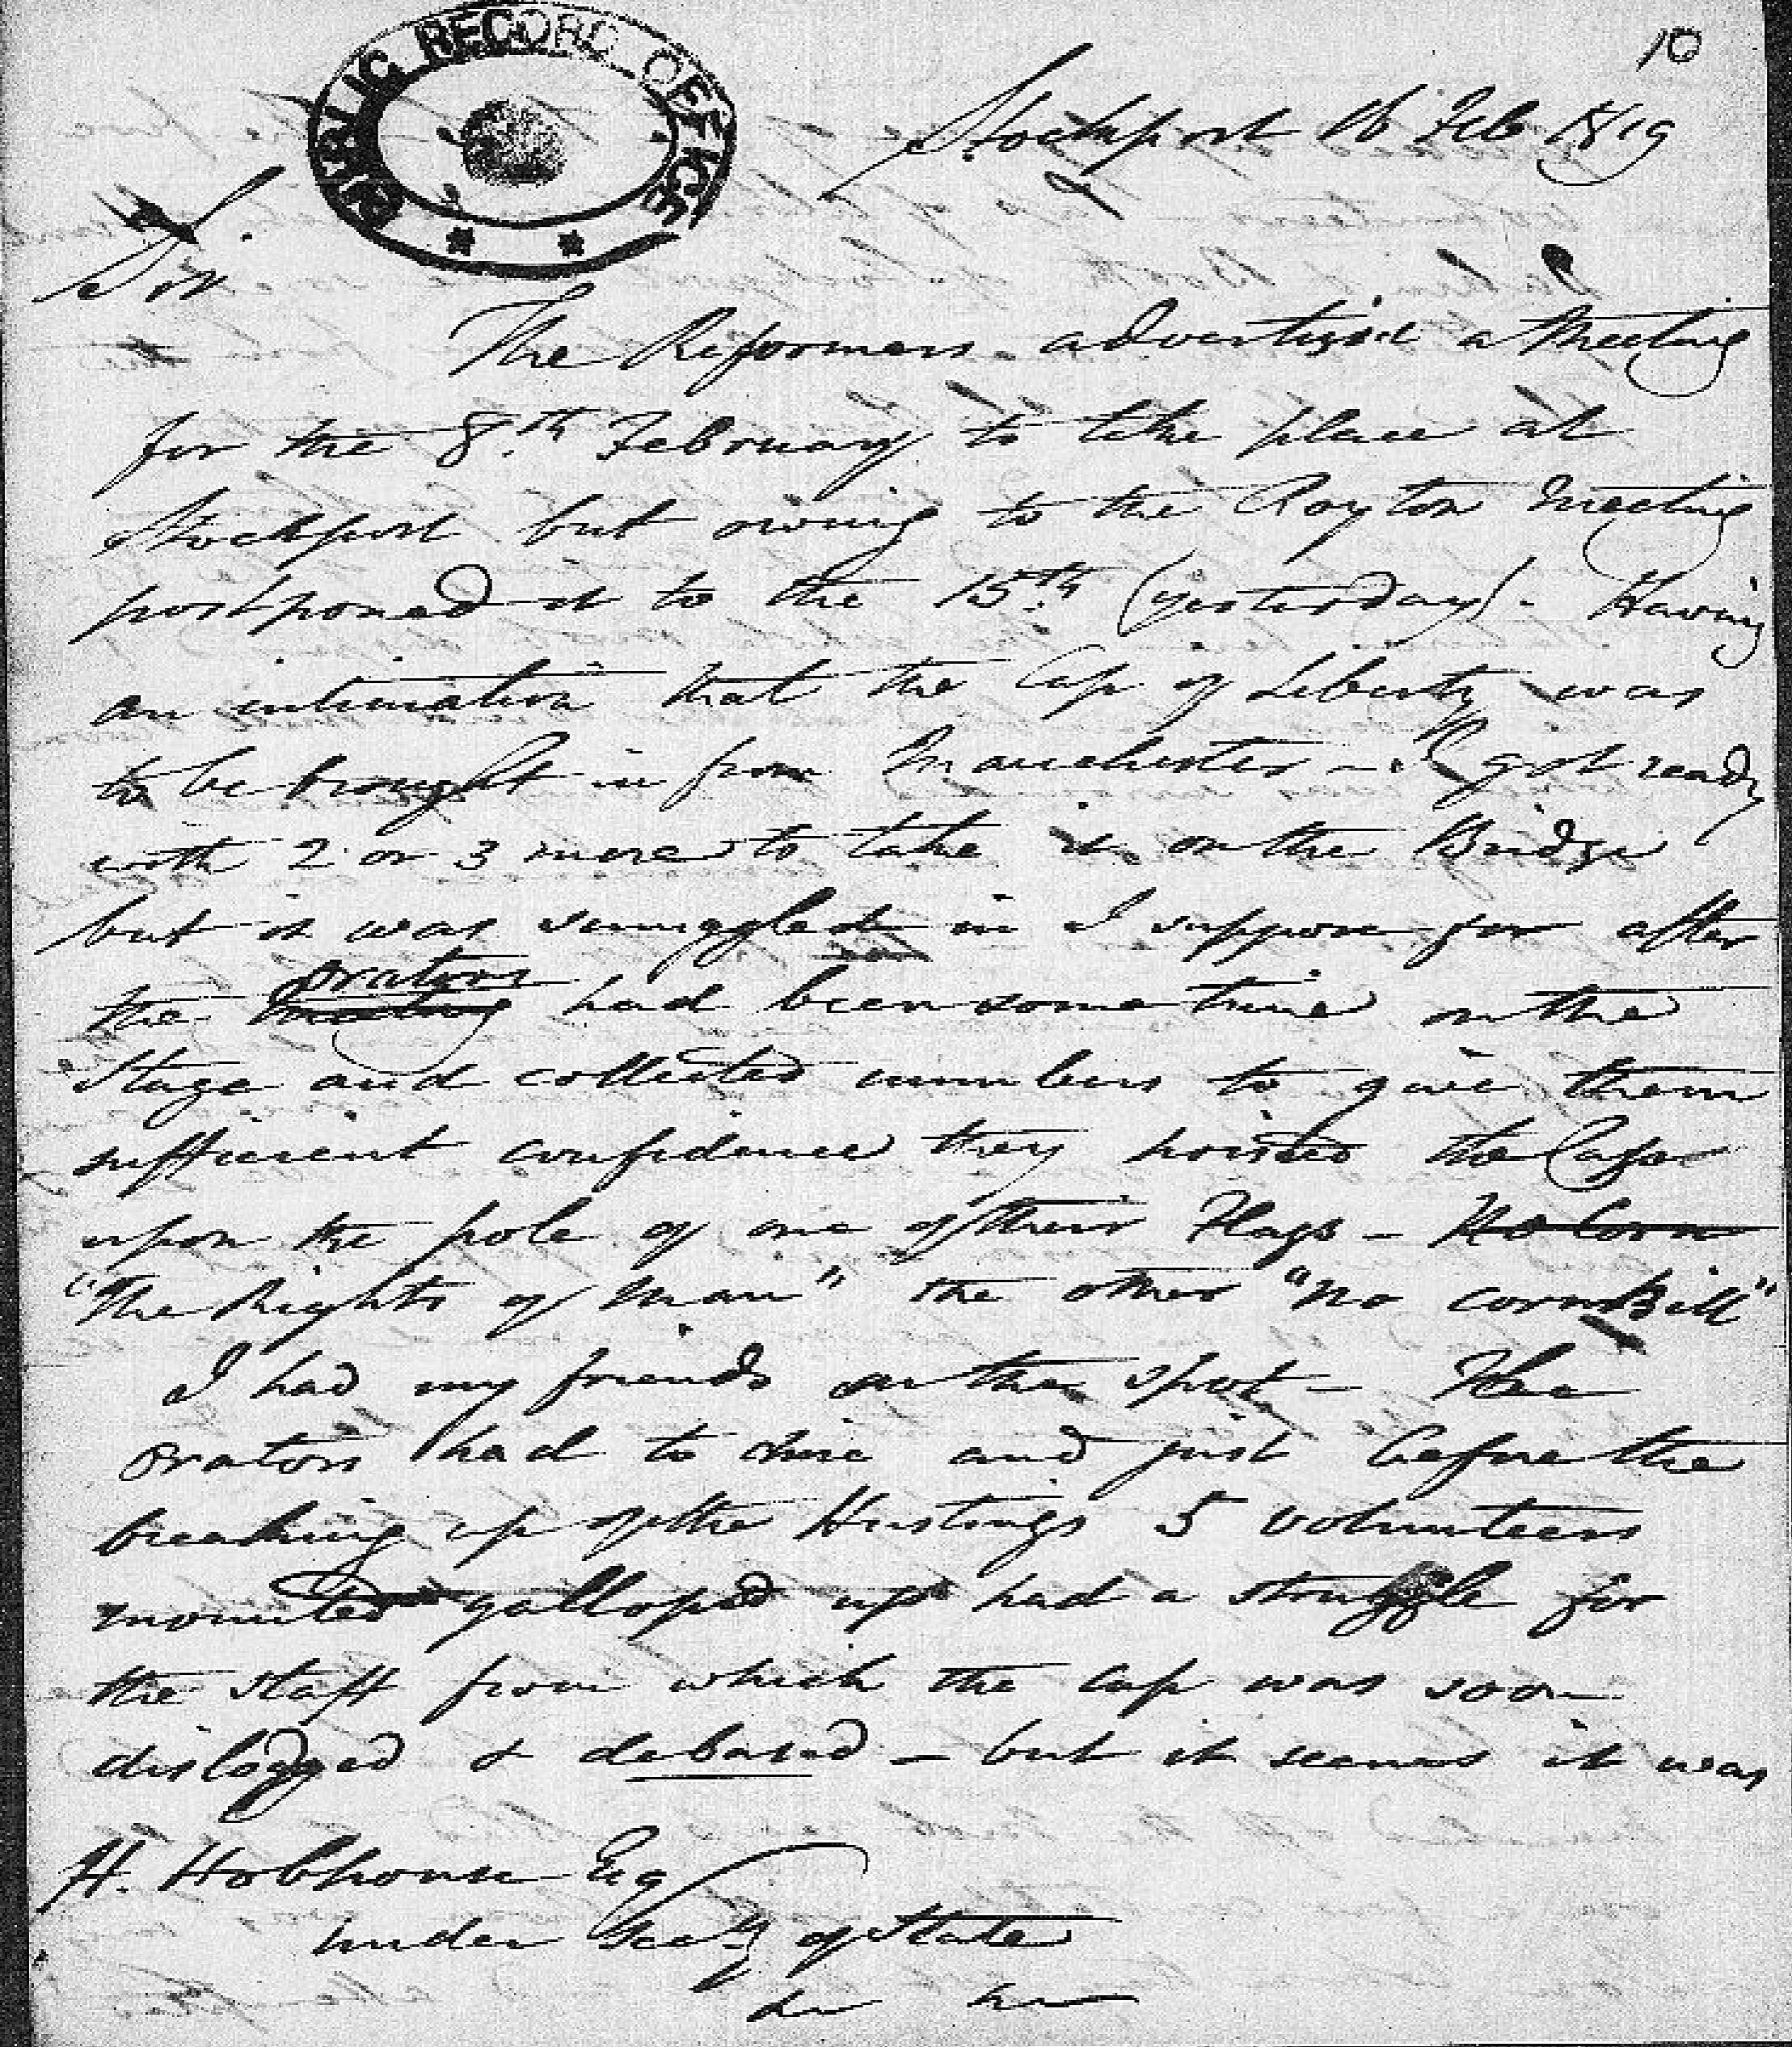 10
PUBLIC RECORD OFFICE
Stockport 16 Feb 1819
Sir.
The Reformers advertised a Meeting
for the 8.th February to take place at
Stockport but owing to the Royton Meeting
postponed it to the 15.th (yesterday). Having
an intimation that the Cap of Liberty was
to be brought in from Manchester – I got ready
with 2 or 3 more to take it on the Bridge
but it was smuggled in I suppose for after
orators
the meeting had been some time on the
Stage and collected numbers to give them
sufficient confidence they hoisted the Cap
upon the pole of one of their Flags – No Corn
"The Rights of Man" the other "No corn Bill"
I had my friends on the spot – The
orators had to dine and just before the
breaking up of the Hustings 5 volunteers
mounted galloped up had a struggle for
the staff from which the cap was soon
dislodged & debased – but it seems it was
H. Hobhouse Esq
Under Secy of State